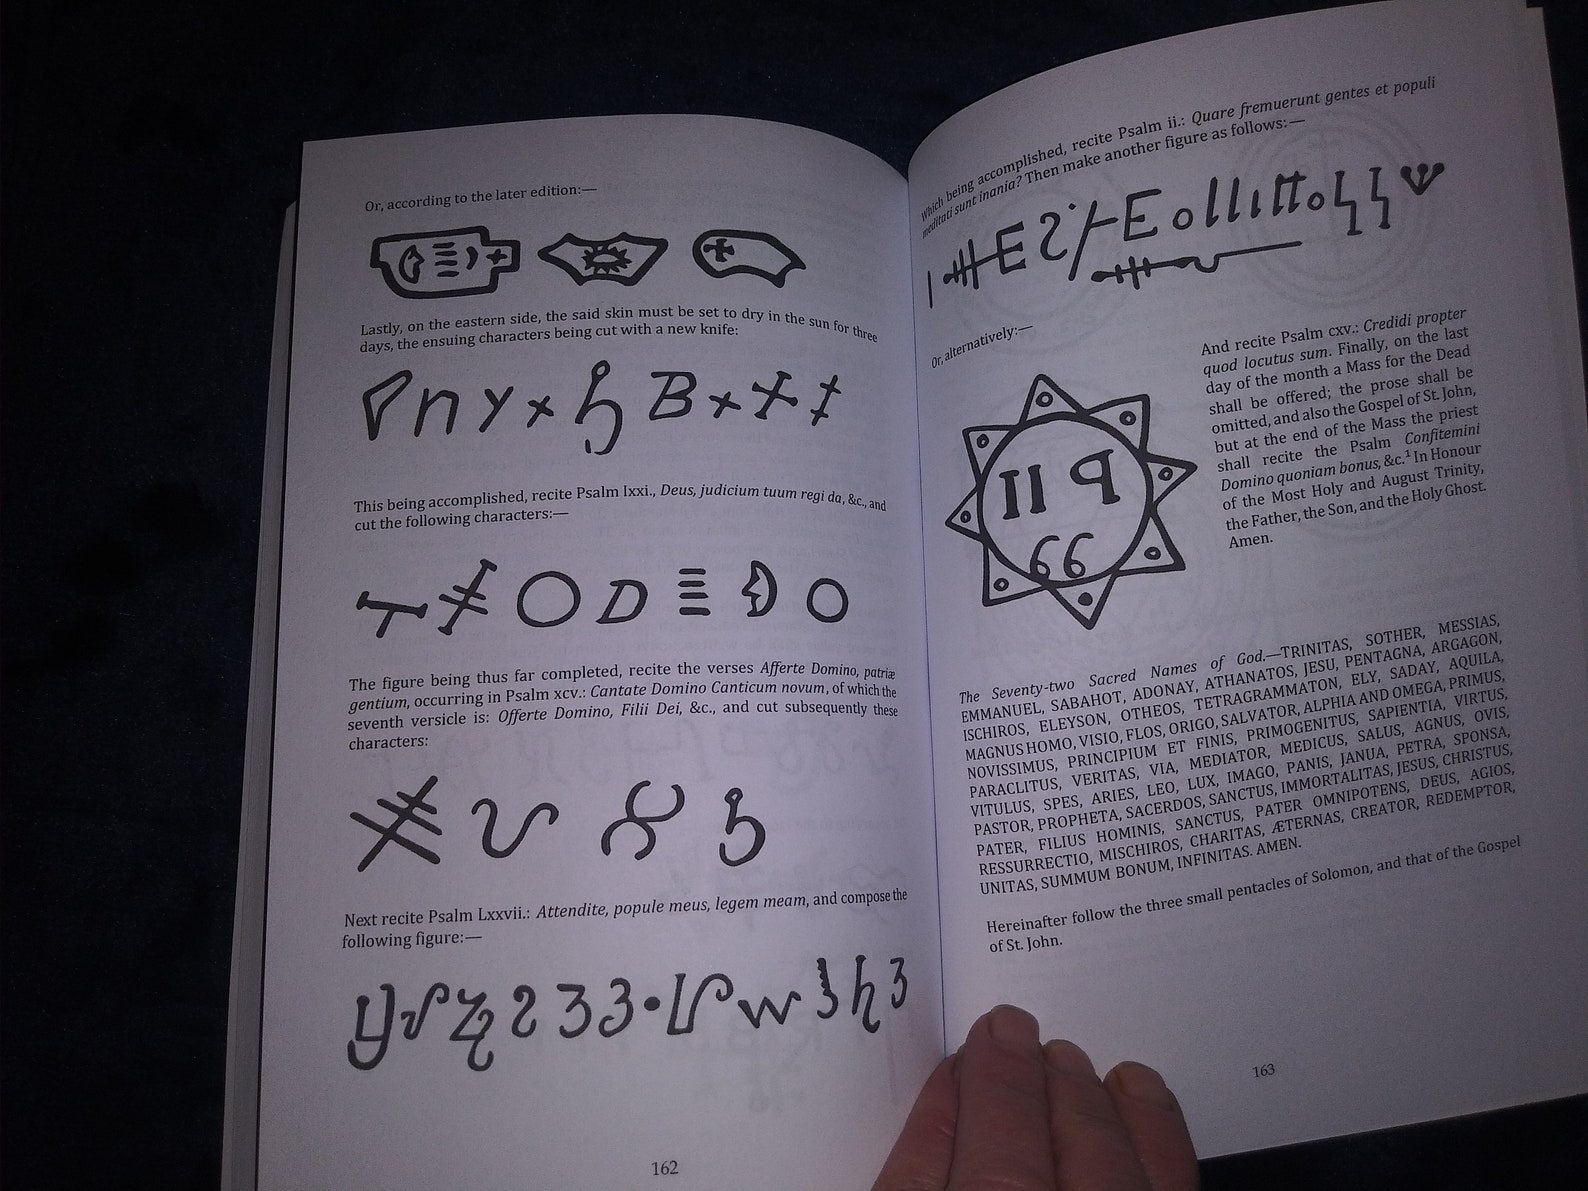 Or, according to the later edition:—
Lastly, on the eastern side, the said skin must be set to dry in the sun for three
days, the ensuing characters being cut with a new knife:
This being accomplished, recite Psalm lxxi., Deus, judicium tuum regi da, &c., and
cut the following characters:—
The figure being thus far completed, recite the verses Afferte Domino, patriæ
gentium, occurring in Psalm xcv.: Cantate Domino Canticum novum, of which the
seventh versicle is: Offerte Domino, Filii Dei, &c., and cut subsequently these
characters:
Next recite Psalm Lxxvii.: Attendite, popule meus, legem meam, and compose the
following figure:—
162
Which being accomplished, recite Psalm ii.: Quare fremuerunt gentes et populi
meditati sunt inania? Then make another figure as follows:—
Or, alternatively:—
And recite Psalm cxv.: Credidi propter
quod locutus sum. Finally, on the last
day of the month a Mass for the Dead
shall be offered; the prose shall be
omitted, and also the Gospel of St. John,
but at the end of the Mass the priest
shall recite the Psalm Confitemini
Domino quoniam bonus, &c.¹ In Honour
of the Most Holy and August Trinity,
the Father, the Son, and the Holy Ghost.
Amen.
The Seventy-two Sacred Names of God.—TRINITAS, SOTHER, MESSIAS,
EMMANUEL, SABAHOT, ADONAY, ATHANATOS, JESU, PENTAGNA, ARGAGON,
ISCHIROS, ELEYSON, OTHEOS, TETRAGRAMMATON, ELY, SADAY, AQUILA,
MAGNUS HOMO, VISIO, FLOS, ORIGO, SALVATOR, ALPHIA AND OMEGA, PRIMUS,
NOVISSIMUS, PRINCIPIUM ET FINIS, PRIMOGENITUS, SAPIENTIA, VIRTUS,
PARACLITUS, VERITAS, VIA, MEDIATOR, MEDICUS, SALUS, AGNUS, OVIS,
VITULUS, SPES, ARIES, LEO, LUX, IMAGO, PANIS, JANUA, PETRA, SPONSA,
PASTOR, PROPHETA, SACERDOS, SANCTUS, IMMORTALITAS, JESUS, CHRISTUS,
PATER, FILIUS HOMINIS, SANCTUS, PATER OMNIPOTENS, DEUS, AGIOS,
RESSURRECTIO, MISCHIROS, CHARITAS, ÆTERNAS, CREATOR, REDEMPTOR,
UNITAS, SUMMUM BONUM, INFINITAS. AMEN.
Hereinafter follow the three small pentacles of Solomon, and that of the Gospel
of St. John.
163